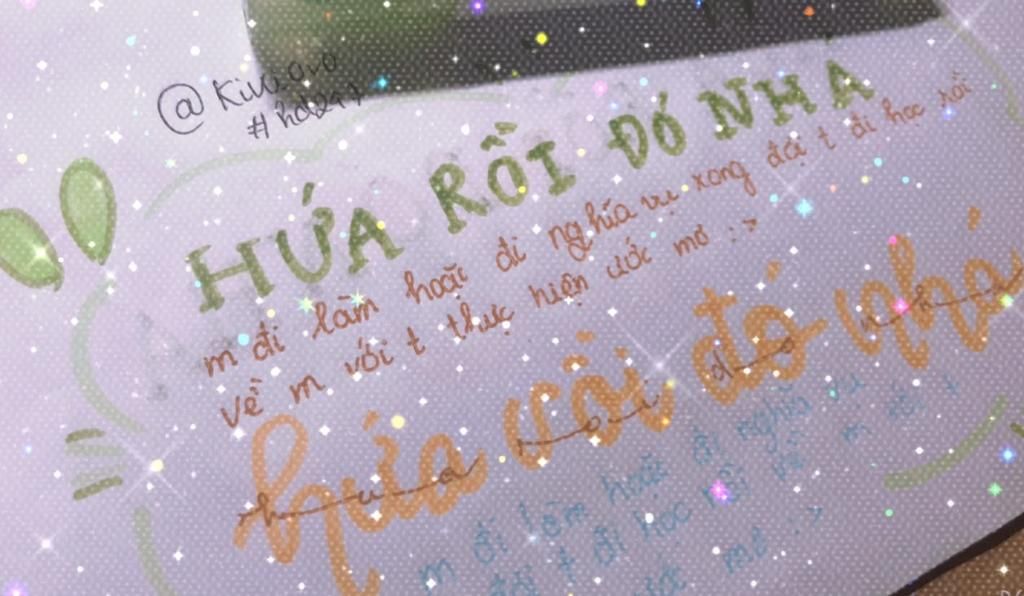 @Kiwiovo
#hd247
HỨA RỒI ĐÓ NHA
m đi làm hoặc đi nghĩa vụ xong đợi t đi học rồi
về m với t thực hiện ước mơ :>
hứa rồi đó nhá
h u a r o i d o n h a
m đi làm hoặc đi nghĩa vụ
đợi t đi học rồi về m với t
ước mơ :>